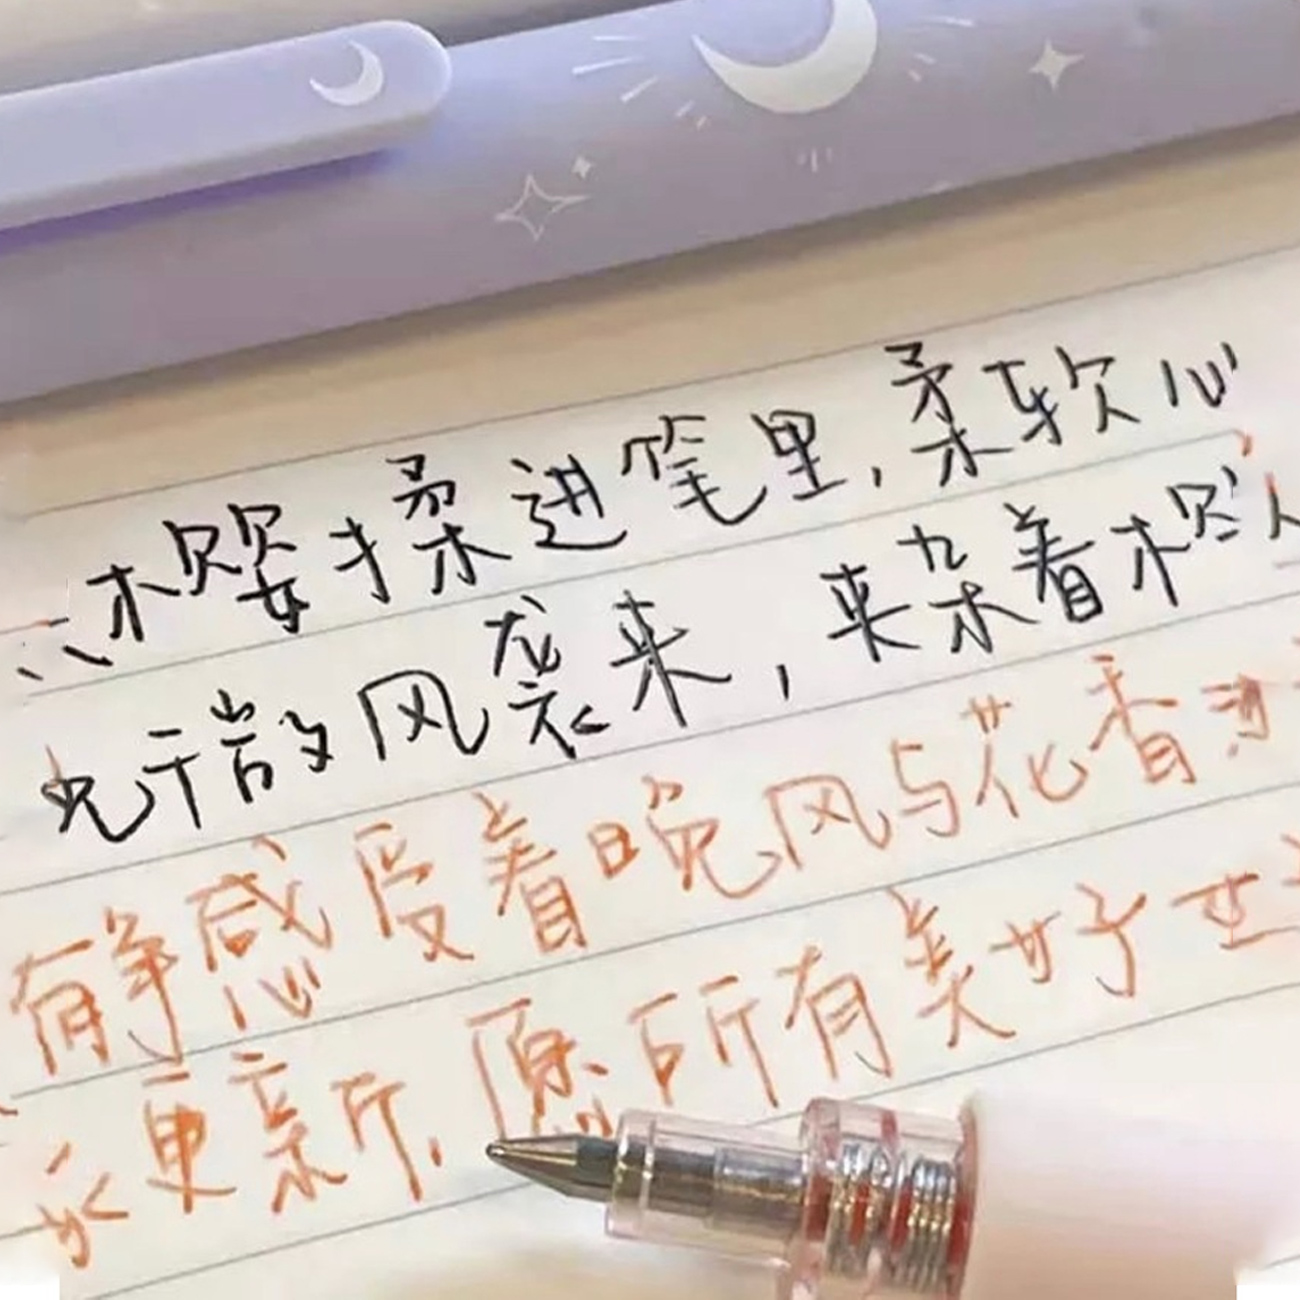 樱揉进笔里,柔软心
晚微风袭来,来杂着樱
静感受着晚风与花香
永更新,愿所有美好